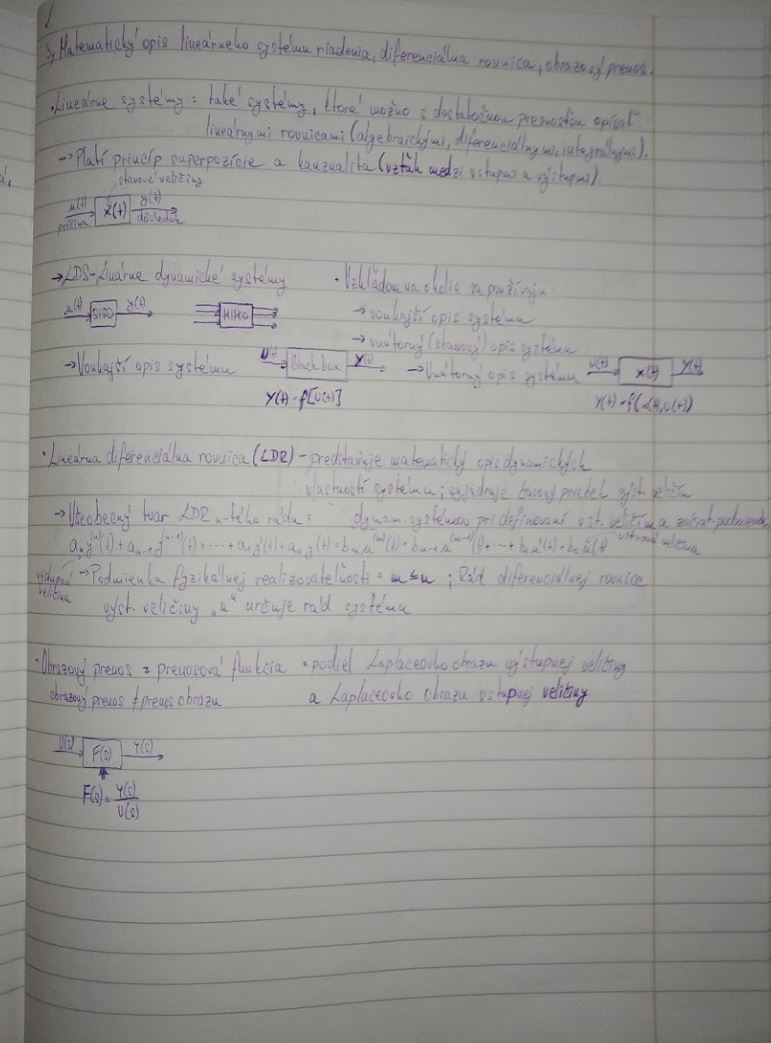 3, Matematický opis lineárneho systému riadenia, diferenciálna rovnica, obrazový prenos.
• Lineárne systémy = také systémy, ktoré možno s dostatočnou presnosťou opísať
lineárnymi rovnicami (algebraickými, diferenciálnymi, integrálnymi).
→ Platí princíp superpozície a kauzualita (vzťah medzi vstupmi a výstupmi)
stavové veličiny
u(t) x(t) y(t)
príčina dôsledok
→ LDS - Lineárne dynamické systémy
• Vzhľadom na okolie sa používajú:
u(t) SISO y(t) MIMO
→ vonkajší opis systému
→ vnútorný (stavový) opis systému
→ Vonkajší opis systému U(t) Black box Y(t)
Y(t) = f[U(t)]
→ Vnútorný opis systému U(t) x(t) Y(t)
Y(t) = f(x(t), u(t))
• Lineárna diferenciálna rovnica (LDR) - predstavuje matematický opis dynamických
vlastností systému; vyjadruje časový priebeh výst. veličín
→ Všeobecný tvar LDR n-tého rádu: dynam. systémov pri definovaní vst. veličín a začiat. podmienok
aₙy⁽ⁿ⁾(t) + aₙ₋₁y⁽ⁿ⁻¹⁾(t) + ... + a₁y'(t) + a₀y(t) = bₘu⁽ᵐ⁾(t) + bₘ₋₁u⁽ᵐ⁻¹⁾(t) + ... + b₁u'(t) + b₀u(t) vstupná veličina
výstupná veličina
→ Podmienka fyzikálnej realizovateľnosti = m ≤ n ; Rád diferenciálnej rovnice
výst. veličiny "n" určuje rád systému
• Obrazový prenos = prenosová funkcia = podiel Laplaceovho obrazu výstupnej veličiny
obrazový prenos ≠ prenos obrazu a Laplaceovho obrazu vstupnej veličiny
U(s) F(s) Y(s)
F(s) = Y(s)/U(s)